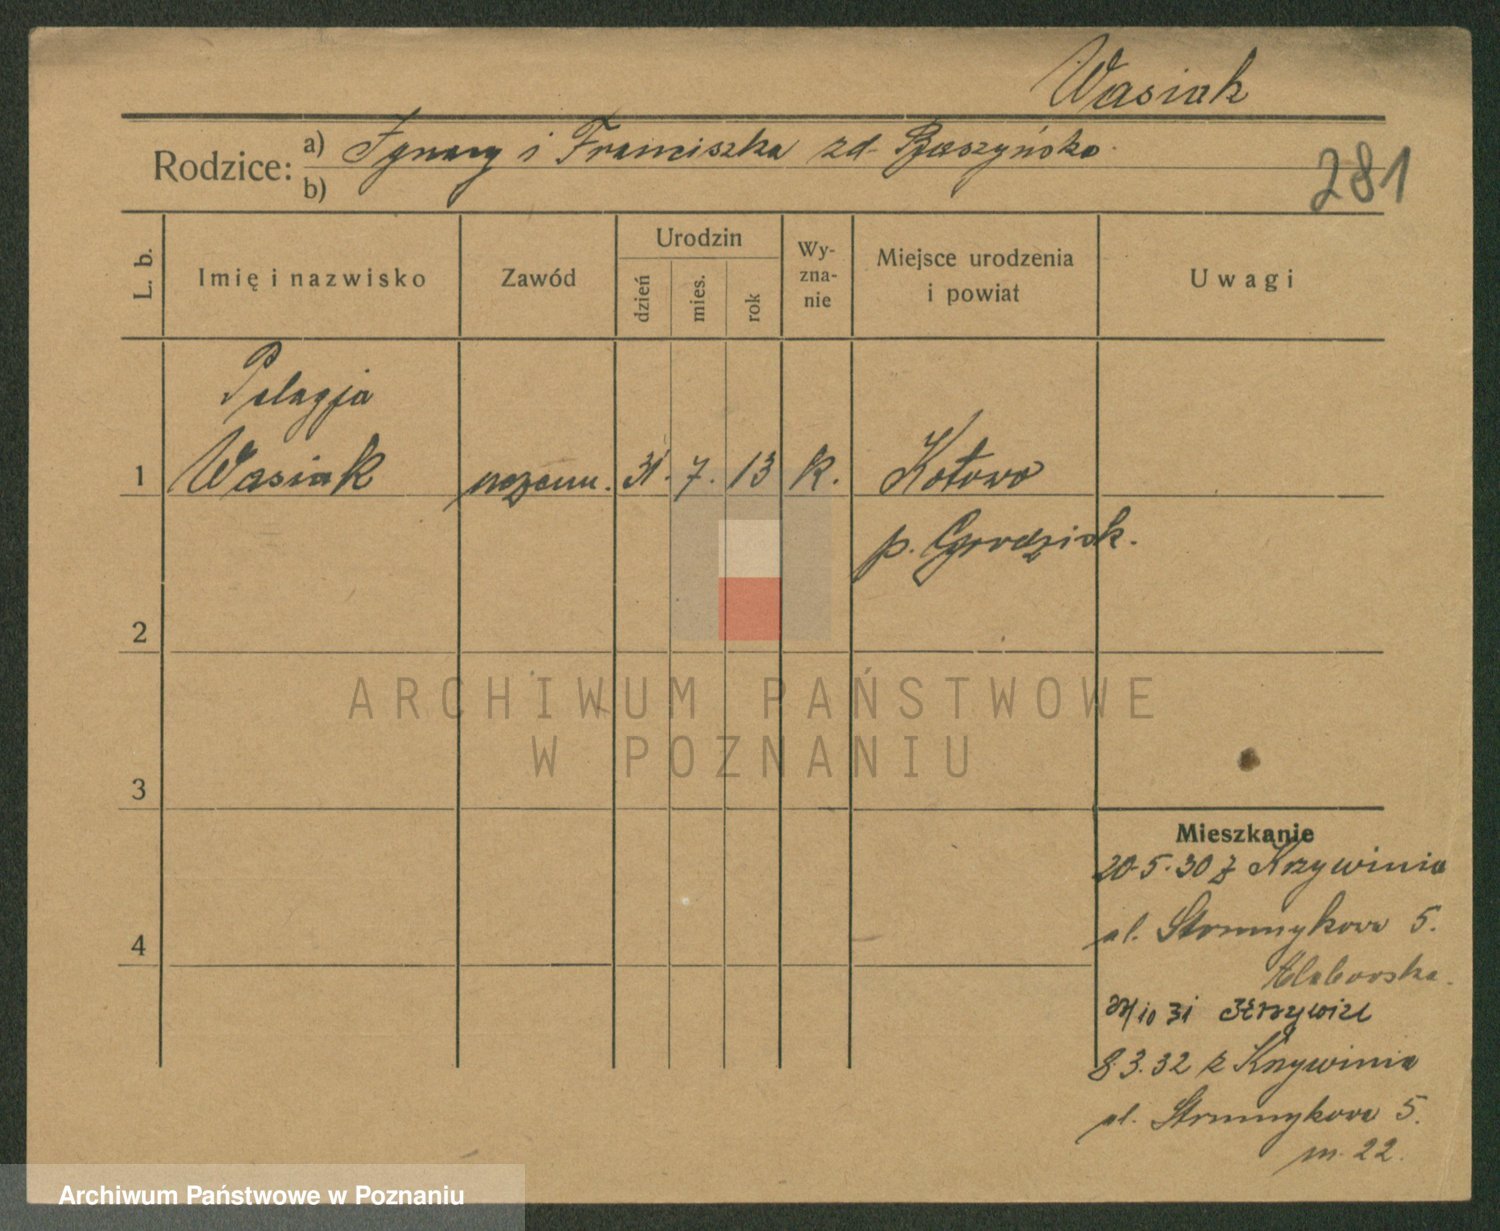 Wasiak
Rodzice: a) Ignacy i Franciszka zd.
b)
281
L. b.
Imię i nazwisko
Zawód
Urodzin
dzień
mies.
rok
Wy-
zna-
nie
Miejsce urodzenia
i powiat
Uwagi
Pelagja
1 Wasiak 31. 7. 13 k. Kotowo
p. Grodzisk.
2
ARCHIWUM PAŃSTWOWE
W POZNANIU
3
Mieszkanie
20.5.30 z Krzywinia
ul. Strumykowa 5.
4
10 31
8.3.32 z Krzywinia
ul. Strumykowa 5.
m. 22.
Archiwum Państwowe w Poznaniu